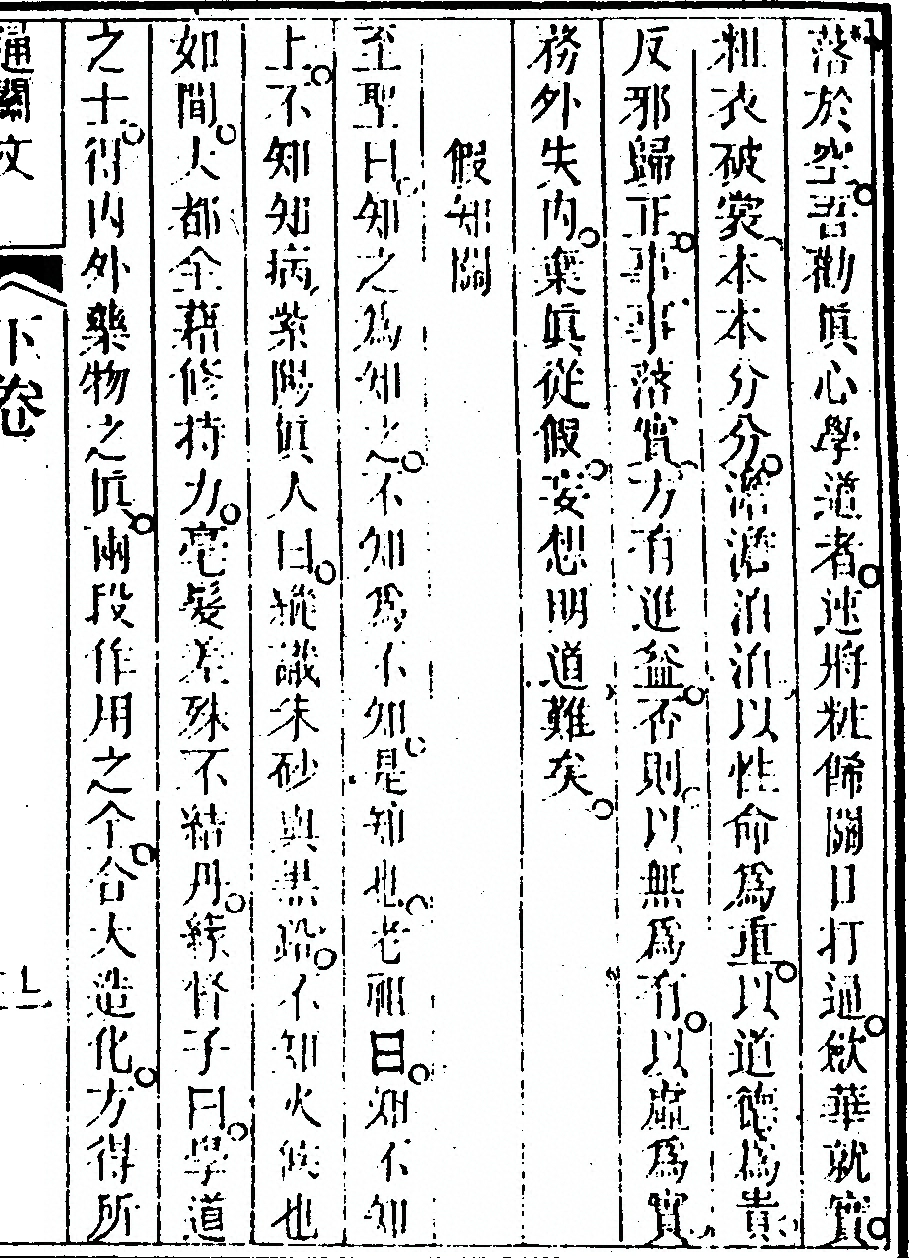 落於空吾勸眞心學道者速將粧飾關口打通斂華就實
粗衣破裳本本分分澹澹泊泊以性命爲重以道德爲貴
反邪歸正事事落實方有進益否則以無爲有以虛爲實
務外失內棄眞從假妄想明道難矣
假知關
至聖曰知之爲知之不知爲不知是知也老祖曰知不知
上不知知病紫陽眞人曰縱識朱砂與黑鉛不知火候也
如閒大都全藉修持力毫髮差殊不結丹緣督子曰學道
之士得內外藥物之眞兩段作用之全合大造化方得所
通關文
下卷